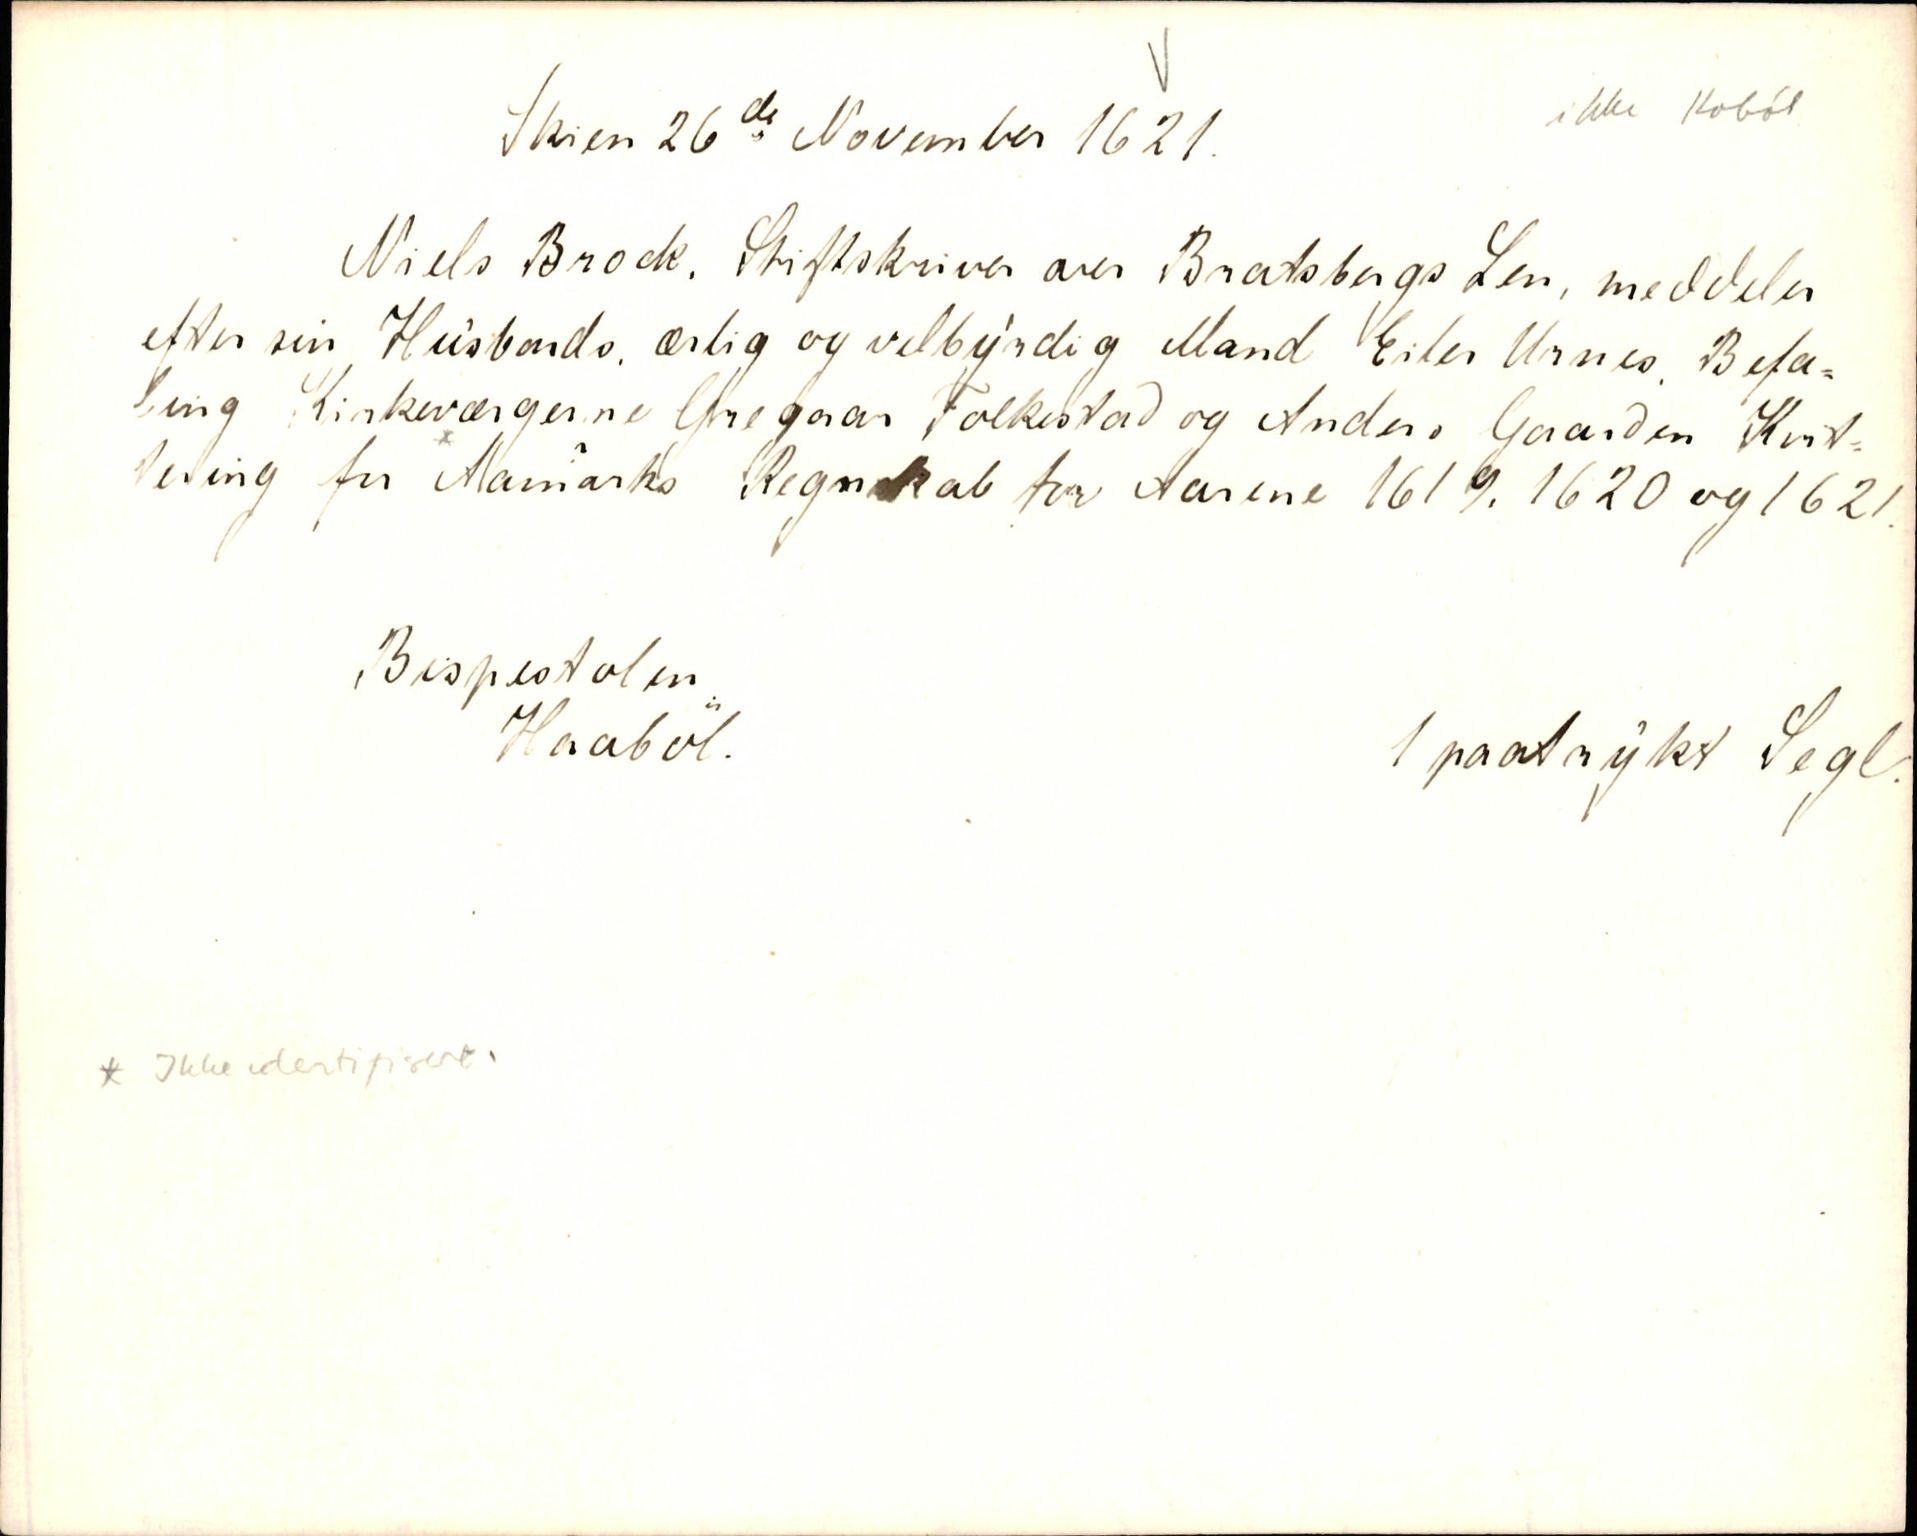 ikke Kobøl
Skien 26de November 1621.
Niels Brock, Stiftskriver over Bratsbergs Len, meddeler
efter sin Husbonds, ærlig og velbyrdig Mand Eiler Urnes, Befa=
ling Kirkeværgerne Gregaar Folkestad og Anders Gaarden Kvit=
tering for Aamarks* Regnskab for Aarene 1619, 1620 og 1621.
Bispestolen
Haaböl.
1 paatrykt Segl.
* Ikke identifisert.